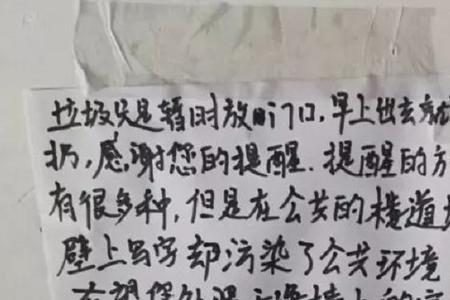 垃圾只是暂时放旪门口,早上出去就
扔,感谢您的提醒.提醒的方
有很多种,但是在公共的楼道
壁上写字却污染了公共环境